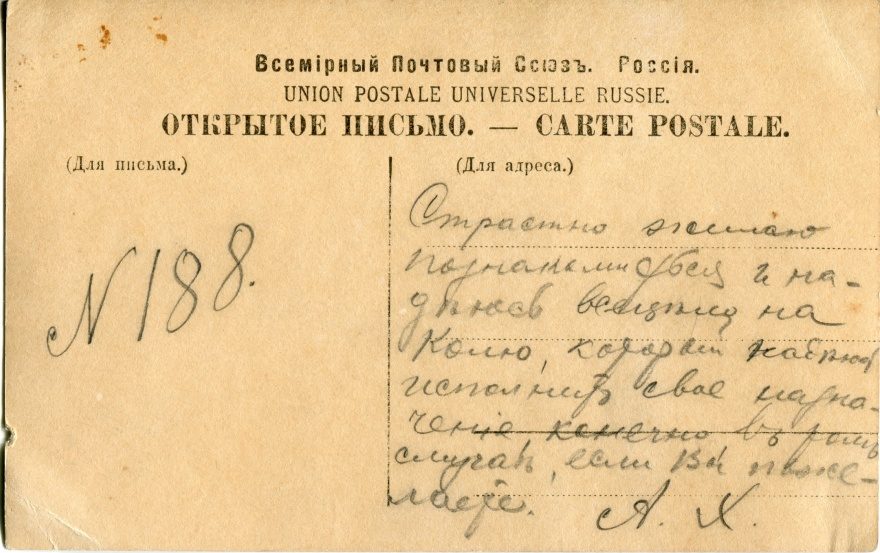 Всемірный Почтовый Союзъ. Россія.
UNION POSTALE UNIVERSELLE RUSSIE.
ОТКРЫТОЕ ПИСЬМО. — CARTE POSTALE.
(Для письма.)
(Для адреса.)
N 188.
Страстно желаю
познакомиться и на-
дѣюсь всецѣло на
Колю, который
исполнитъ свое назна-
ченіе, конечно въ томъ
случаѣ, если Вы поже-
лаете. А. Х.